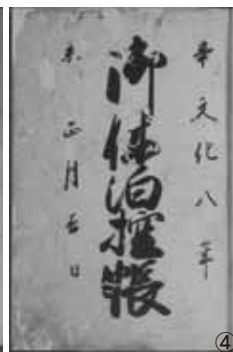 辛文化八年
御休泊控帳
未正月吉日
④